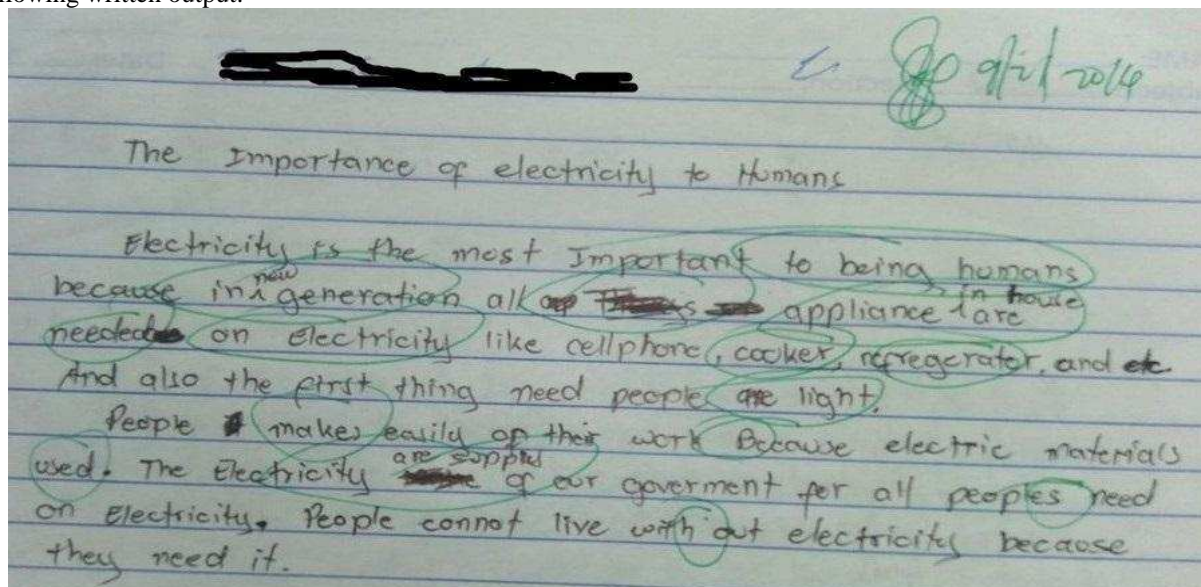 lowing written output.
9/2/2014
The Importance of electricity to Humans
Electricity is the most Important to being humans
because in new generation all appliance in house are
needed on Electricity like cellphone, cocker, refregerater, and etc.
And also the first thing need people are light.
People makes easily of their work Because electric materials
used. The Electricity are supply of our goverment for all peoples need
on Electricity. People connot live with out electricity because
they need it.